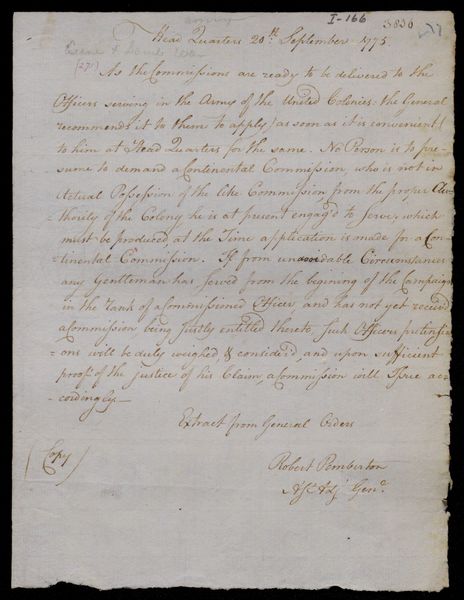 I-166
3836
Head Quarters 20th September 1775
(271)
As the Commissions are ready to be delivered to the
Officers serving in the Army of the United Colonies: the General
recommends it to them to apply (as soon as it is convenient)
to him at Head Quarters for the same. No Person is to pre-
sume to demand a Continental Commission, who is not in
Actual Possession of the like Commission, from the proper Au-
-thority of the Colony he is at present engag'd to serve, which
must be produced at the Time application is made for a Con-
-tinental Commission. If from unavoidable Circumstances
any Gentleman has served from the begining of the Campaign
in the Rank of a Commissioned Officer and has not yet received
a Commission being justly entitled thereto, such Officers pretensi-
-ons will be duly weighed, & consider'd, and upon sufficient
proof of the justice of his Claim, a Commission will Issue ac-
-cordingly—
Extract from General Orders
(Copy)
Robert Pemberton
Adj Genl.